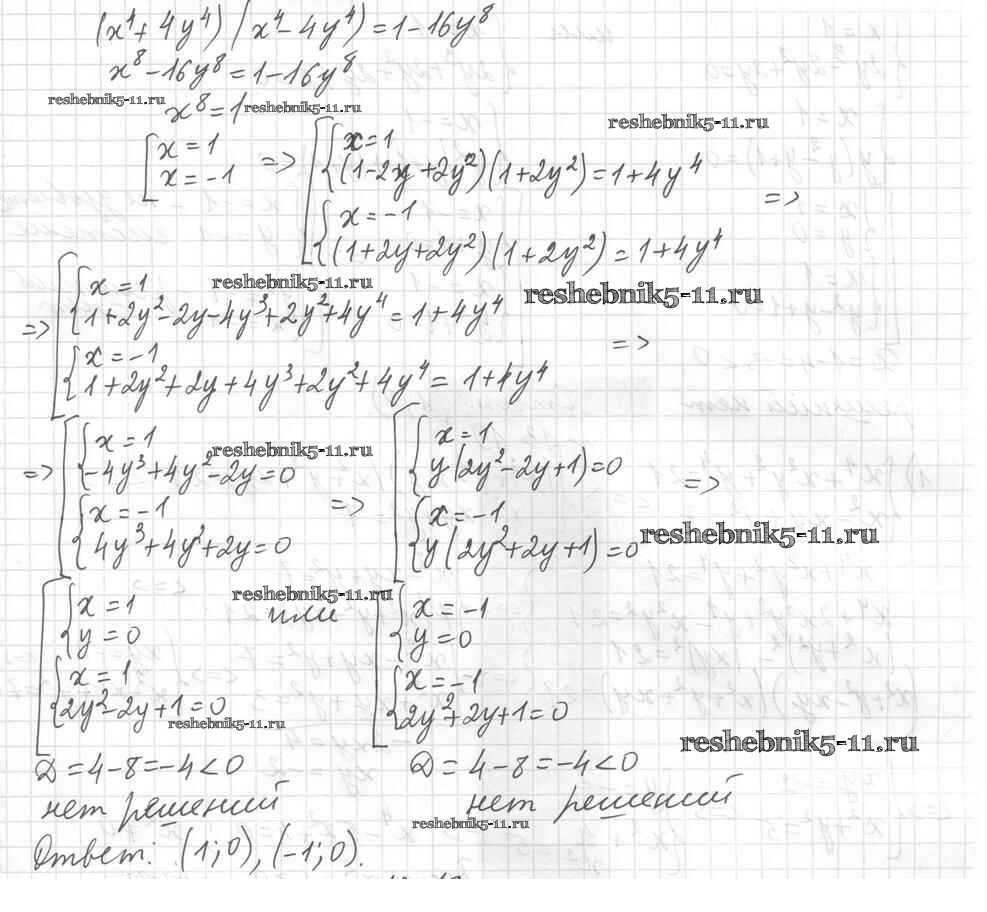 (x⁴+4y⁴)(x⁴-4y⁴)=1-16y⁸
x⁸-16y⁸=1-16y⁸
reshebnik5-11.ru x⁸=1 reshebnik5-11.ru
reshebnik5-11.ru
[x=1
x=-1
=> [{x=1
(1-2y+2y²)(1+2y²)=1+4y⁴
{x=-1
(1+2y+2y²)(1+2y²)=1+4y⁴
=>
=> [{x=1 reshebnik5-11.ru
reshebnik5-11.ru
1+2y²-2y-4y³+2y²+4y⁴=1+4y⁴
{x=-1
1+2y²+2y+4y³+2y²+4y⁴=1+4y⁴
=>
=> [{x=1 reshebnik5-11.ru
-4y³+4y²-2y=0
{x=-1
4y³+4y²+2y=0
=> [{x=1
y(2y²-2y+1)=0
{x=-1
y(2y²+2y+1)=0
=>
reshebnik5-11.ru
reshebnik5-11.ru
[{x=1
y=0
{x=1
2y²-2y+1=0
reshebnik5-11.ru
D=4-8=-4<0
нет решений
или
[{x=-1
y=0
{x=-1
2y²+2y+1=0
reshebnik5-11.ru
D=4-8=-4<0
нет решений
reshebnik5-11.ru
Ответ: (1;0),(-1;0).